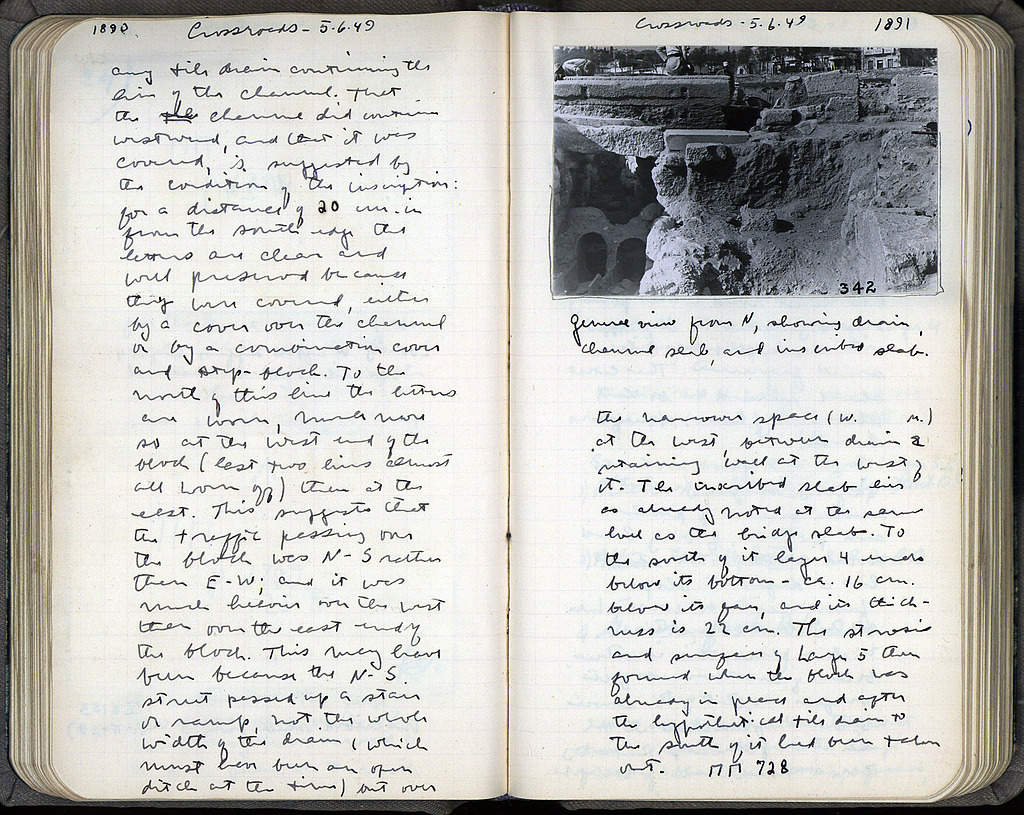 1890
Crossroads - 5.6.49
any tile drain continuing the
line of the channel. That
the channel did continue
westward, and that it was
covered, is suggested by
the condition of the inscription:
for a distance of 20 cm. in
from the south edge the
letters are clear and
well preserved because
they were covered, either
by a cover over the channel
or by a combination cover
and step-block. To the
north of this line the letters
are worn, much more
so at the west end of the
block (last two lines almost
all worn off) than at the
east. This suggests that
the traffic passing over
the block was N-S rather
than E-W; and it was
much heavier over the west
than over the east end of
the block. This may have
been because the N-S
street passed up a stair
or ramp, not the whole
width of the drain (which
must have been an open
ditch at the time) but over
Crossroads - 5.6.49
1891
342
General view from N, showing drain,
channel slab, and inscribed slab.
the narrower space (w. m.)
at the west between drain &
retaining wall at the west of
it. The inscribed slab lies
as already noted at the same
level as the bridge slab. To
the south of it layer 4 ends
below its bottom - ca. 16 cm.
below its face, and its thick-
ness is 22 cm. The strosis
and surface of Layer 5 then
formed when the block was
already in place and after
the hypothetical tile drain to
the south of it had been taken
out. ΠΠ 728